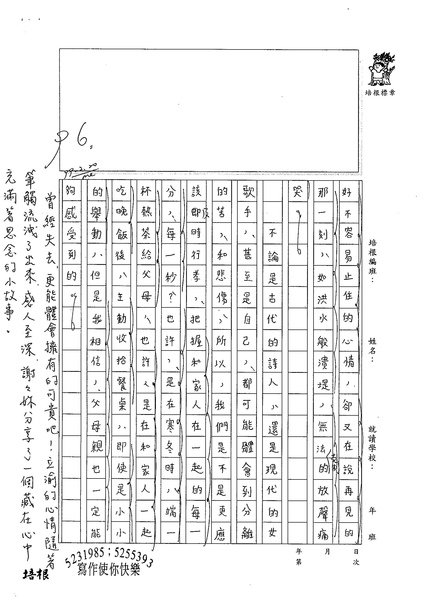 培根標章
培根編班：　姓名：　就讀學校：　年　班
年　月　日
第　次
好不容易止住的心情，卻又在說再見的
那一刻，如洪水般潰堤，無法的放聲痛
哭。
不論是古代的詩人，還是現代的女
歌手，甚至是自己，都可能體會到分離
的苦，和悲傷，所以，我們是不是更應
該即時行孝，把握和家人在一起的每一
分，每一秒？也許，是在寒冬時，端一
杯熱茶給父母，也許，是在和家人一起
吃晚飯後，主動收拾餐桌，即使是小小
的舉動，但是我相信，父母親也一定能
夠感受到的。
96。
曾經失去更能體會擁有的可貴吧！立渝的心情隨著
筆觸流洩了出來，感人至深，謝々妳分享了一個藏在心中
充滿著思念的小故事。
5231985；5255393
寫作使你快樂
培根